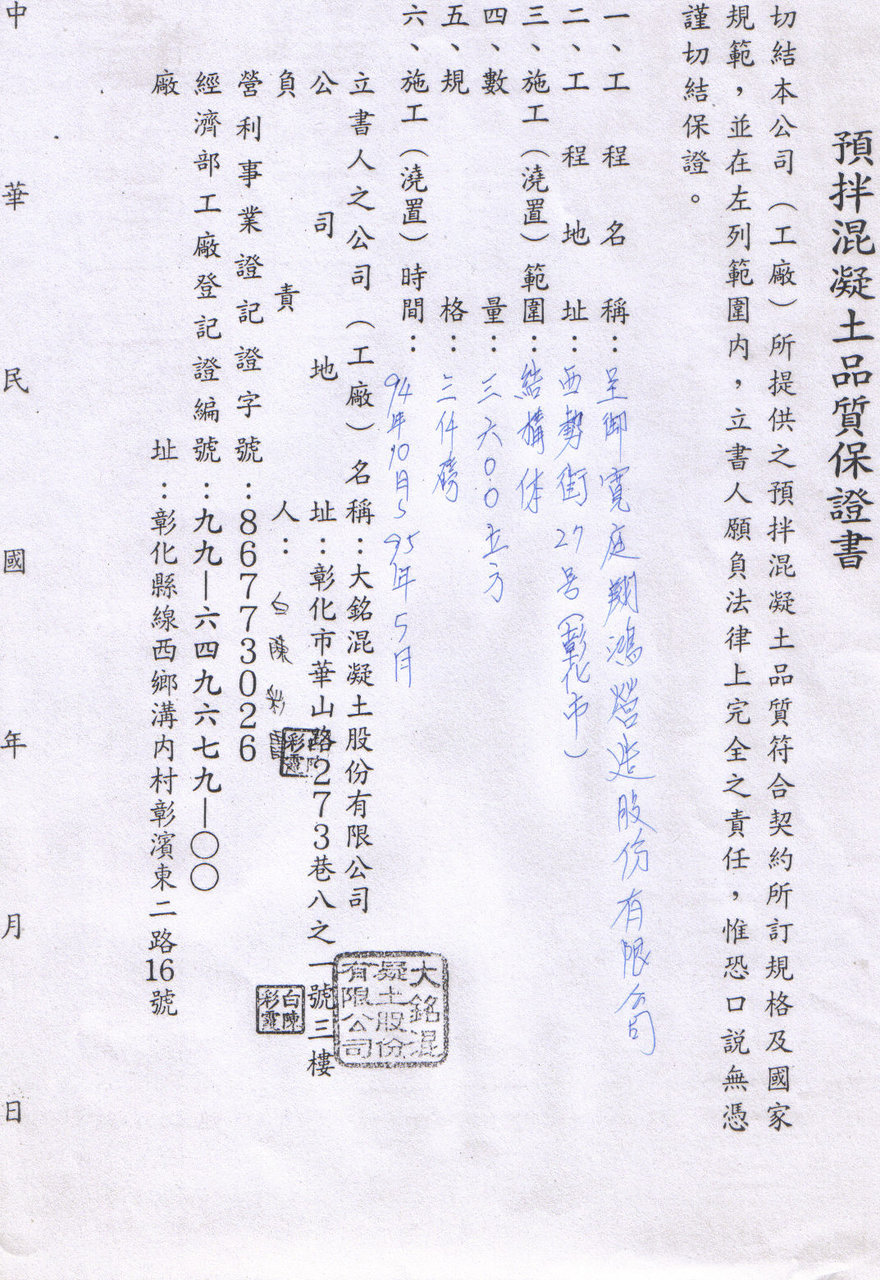 預拌混凝土品質保證書
切結本公司（工廠）所提供之預拌混凝土品質符合契約所訂規格及國家
規範，並在左列範圍內，立書人願負法律上完全之責任，惟恐口說無憑
謹切結保證。
一、工程名稱：呈御寬庭翔鴻營造股份有限公司
二、工程地址：西勢街27号(彰化市)
三、施工（澆置）範圍：結構体
四、數量：三六00立方
五、規格：三仟磅
六、施工（澆置）時間：94年10月~95年5月
立書人之公司（工廠）名稱：大銘混凝土股份有限公司
公司地址：彰化市華山路273巷八之一號三樓
負責人：白陳彩霞
營利事業登記證字號：86773026
經濟部工廠登記證編號：九九—六四九六七九—○○
廠址：彰化縣線西鄉溝內村彰濱東二路16號
大銘混凝土股份有限公司
白陳彩霞
中華民國年月日